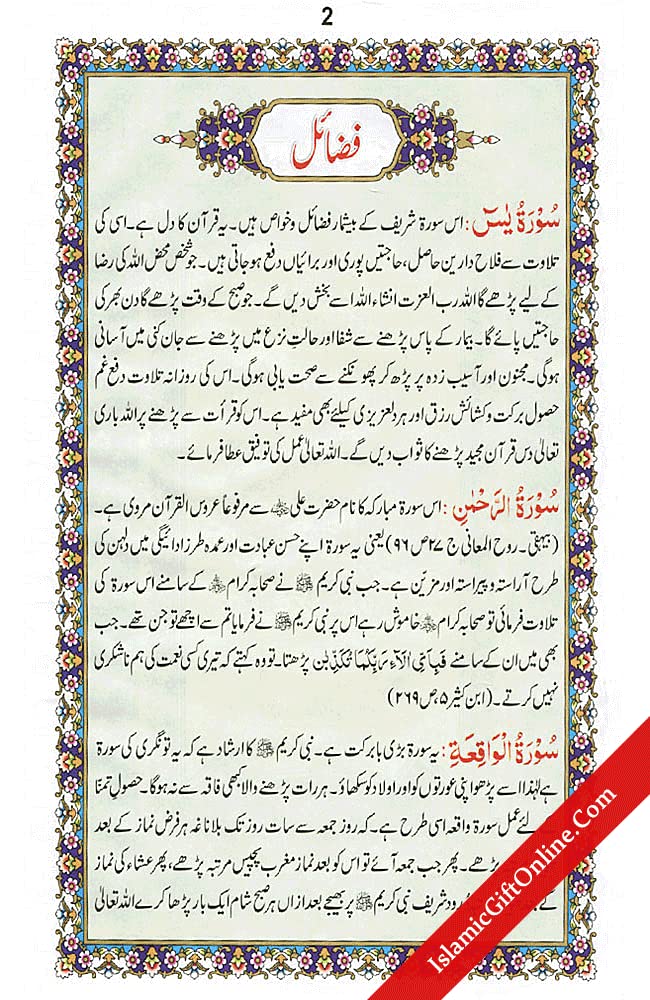 2
فضائل
سُوْرَۃُ یٰسٓ: اس سورۃ شریف کے بیشمار فضائل و خواص ہیں۔ یہ قرآن کا دل ہے۔ اسی کی
تلاوت سے فلاح دارین حاصل، حاجتیں پوری اور برائیاں دفع ہو جاتی ہیں۔ جو شخص محض اللہ کی رضا
کے لیے پڑھے گا اللہ رب العزت انشاء اللہ اسے بخش دیں گے۔ جو صبح کے وقت پڑھے گا دن بھر کی
حاجتیں پائے گا۔ بیمار کے پاس پڑھنے سے شفا اور حالتِ نزع میں پڑھنے سے جان کنی میں آسانی
ہوگی۔ مجنون اور آسیب زدہ پر پڑھ کر پھونکنے سے صحت یابی ہوگی۔ اس کی روزانہ تلاوت دفع غم
حصول برکت و کشائش رزق اور ہردلعزیزی کیلئے بھی مفید ہے۔ اس کو قرأت سے پڑھنے پر اللہ باری
تعالیٰ دس قرآن مجید پڑھنے کا ثواب دیں گے۔ اللہ تعالیٰ عمل کی توفیق عطا فرمائے۔
سُوْرَۃُ الرَّحْمٰنِ: اس سورۃ مبارکہ کا نام حضرت علی ؓ سے مرفوعاً عروس القرآن مروی ہے۔
(بیہقی۔ روح المعانی ج ۲۷ ص ۹۶) یعنی یہ سورۃ اپنے حسن عبادت اور عمدہ طرز ادائیگی میں دلہن کی
طرح آراستہ و پیراستہ اور مزین ہے۔ جب نبی کریم ﷺ نے صحابہ کرام ؓ کے سامنے اس سورۃ کی
تلاوت فرمائی تو صحابہ کرام ؓ خاموش رہے اس پر نبی کریم ﷺ نے فرمایا تم سے اچھے تو جن تھے۔ جب
بھی میں ان کے سامنے فَبِاَیِّ اٰلَآءِ رَبِّکُمَا تُکَذِّبٰنِ پڑھتا۔ تو وہ کہتے کہ تیری کسی نعمت کی ہم ناشکری
نہیں کرتے۔ (ابن کثیر ۵، ص ۲۶۹)
سُوْرَۃُ الْوَاقِعَۃِ: یہ سورۃ بڑی بابرکت ہے۔ نبی کریم ﷺ کا ارشاد ہے کہ یہ تونگری کی سورۃ
ہے لہٰذا اسے پڑھو اپنی عورتوں کو اور اولاد کو سکھاؤ۔ ہر رات پڑھنے والا کبھی فاقہ سے نہ ہوگا۔ حصولِ تمنا
کے لئے عمل سورۃ واقعہ اسی طرح ہے۔ کہ روز جمعہ سے سات روز تک بلا ناغہ ہر فرض نماز کے بعد
پڑھے۔ پھر جب جمعہ آئے تو اس کو بعد نماز مغرب پچیس مرتبہ پڑھے، پھر عشاء کی نماز
کے درود شریف نبی کریم ﷺ پر بھیجے بعد ازاں ہر صبح شام ایک بار پڑھا کرے اللہ تعالیٰ
IslamicGiftOnline.Com